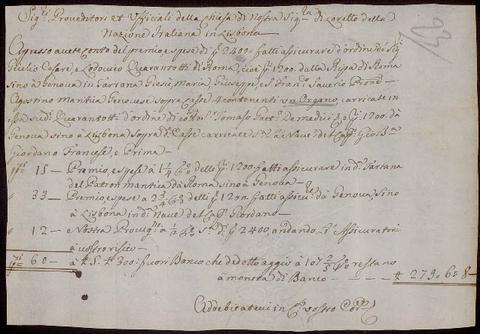 Sig.ri Proveditori et Uffitiali della Chiesa di Nostra Sig.ra di Loretto della
Natione Italiana in Lisbona
Capreso avete conto del premio, e spese di p. 2400 = fatti assicurare d'ordine di SS.ri
Giulio Cesare, e Lodovico Quarantotti di Roma, cioè p. 1200 = dalla Ripa di Roma
sino à Genova in Tartana Giesù, Maria, Giuseppe, e S. Fran.co Saverio Prone
Agostino Mantica Genovese sopra Casse 4 contenenti un Organo, carricate in
Quarantotti d'ordine di Tomaso De medici, e p. 1200 = da
Genova sino à Lisbona sopra d.e Casse carricate Nave del Cap. Gio: Ba
Giordano Francese, e Prima
15 — Premio, e spese à 1 1/4 p% delli p. 1200 fatti assicurare in d.a Tartana
del Patron Mantica da Roma sino à Genova
33 — Premio e spese à 2 3/4 p% delli p. 1200 = fatti assicu.re da Genova sino
à Lisbona in d.a Nave del Cap. Giordano
12 — e Nostra Provig.e à 1/2 p% s. d.i p. 2400, andando
à vostro risico
60 — à £ 5. £ 300: fuori Banco che dedotto aggio à 107 2/5 p% restano
à moneta di Banco — £ 279. 6. 8
Addebitatevi in C. vostro